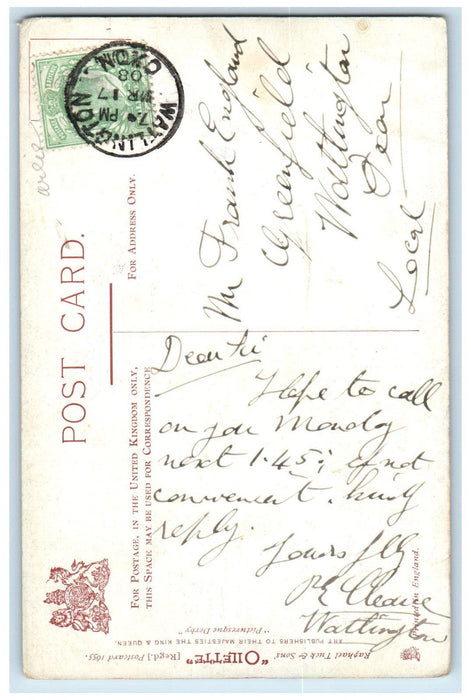 POST CARD.
FOR POSTAGE, IN THE UNITED KINGDOM ONLY,
THIS SPACE MAY BE USED FOR CORRESPONDENCE
FOR ADDRESS ONLY.
WATLINGTON
7 PM
17
08
OXON.
Mr Frank England
Greenfield
Watlington
Local
Dear Sir
Hope to call
on you Monday
next 1.45; if not
convenient. kindly
reply.
Yours ffly
Watlington
Raphael Tuck & Sons' "OILETTE" [Regd.] Postcard 1655.
"Picturesque Derby"
ART PUBLISHERS TO THEIR MAJESTIES THE KING & QUEEN.
Printed in England.